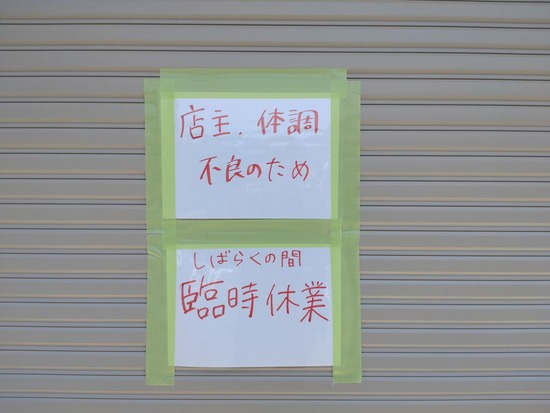 店主、体調
不良のため
しばらくの間
臨時休業